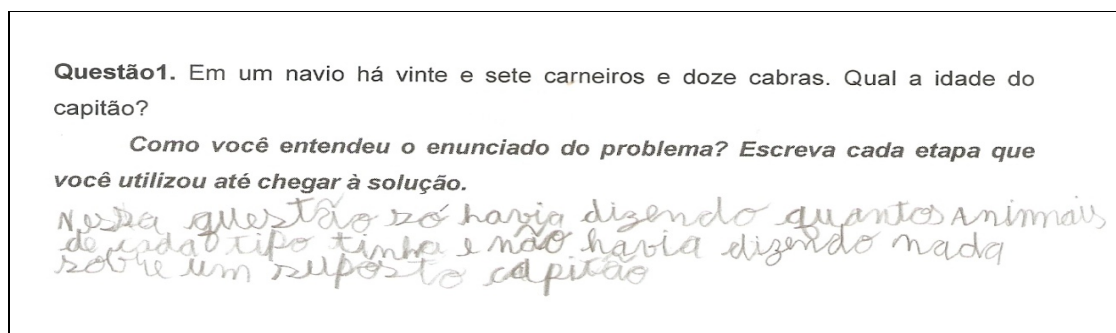 Questão1. Em um navio há vinte e sete carneiros e doze cabras. Qual a idade do
capitão?
Como você entendeu o enunciado do problema? Escreva cada etapa que
você utilizou até chegar à solução.
Nessa questão só havia dizendo quantos Animais
de cada tipo tinha e não havia dizendo nada
sobre um suposto capitão